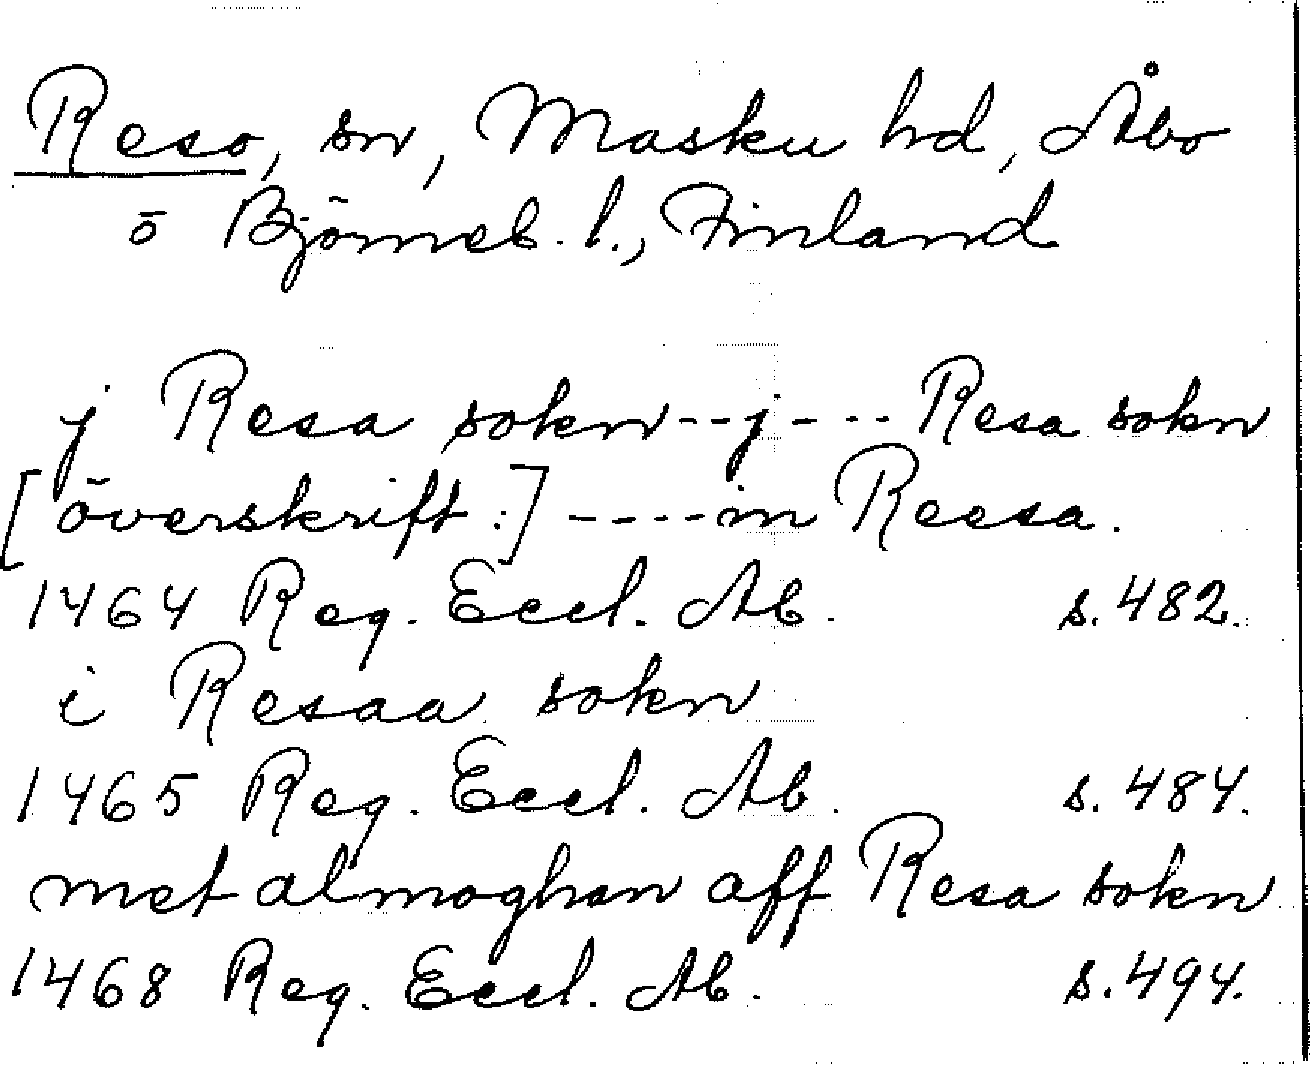 Reso, sn, Masku hd, Åbo
o Björneb. l., Finland
j Resa sokn--j---Resa sokn
[överskrift:]----in Reesa.
1464 Reg. Eccl. Ab. s. 482.
i Resaa sokn
1465 Reg. Eccl. Ab. s. 484.
met almoghan aff Resa sokn
1468 Reg. Eccl. Ab. s. 494.